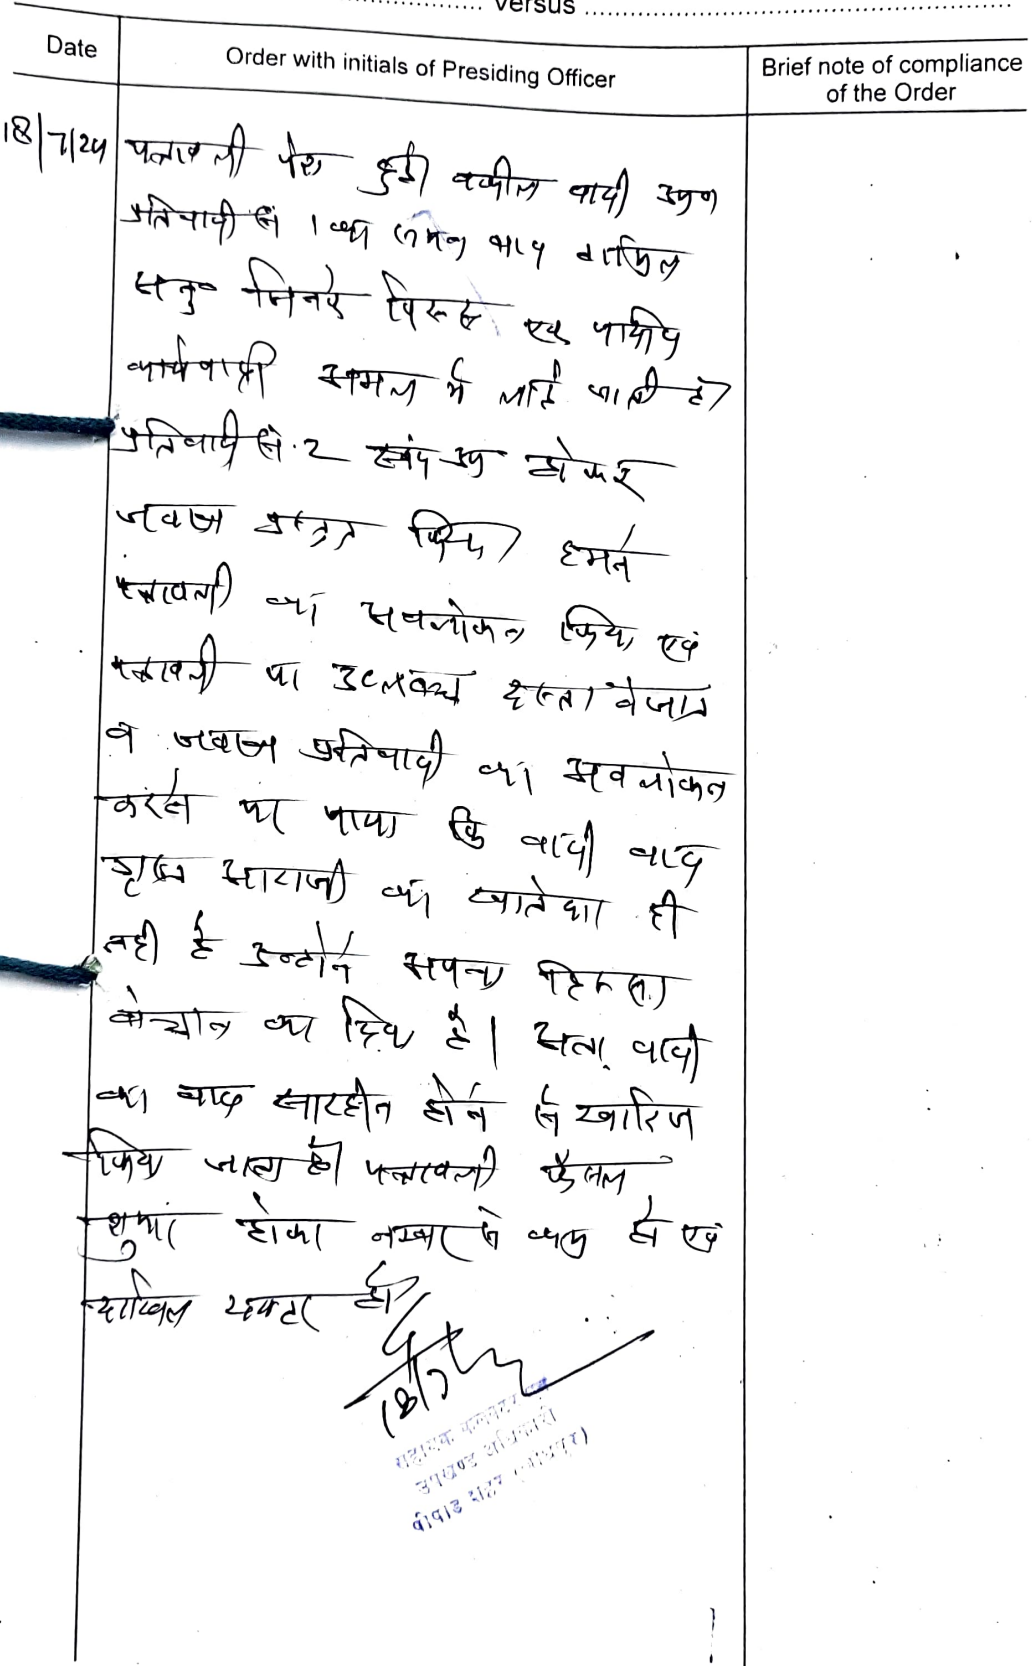 versus
Date
Order with initials of Presiding Officer
Brief note of compliance
of the Order
18/7/24
पत्रावली पेश हुई वकील वादी उप०
प्रतिवादी सं 1 का समन बाद तामिल
जिनके विरुद्ध एक पक्षीय
कार्यवाही अमल में लाई जाती है।
प्रतिवादी सं. 2 स्वंय उप होकर
जवाब प्रस्तुत किया हमने
पत्रावली का अवलोकन किया एवं
पत्रावली पर उपलब्ध दस्तावेजात
व जवाब प्रतिवादी का अवलोकन
करने पर पाया कि वादी वाद
ग्रस्त आराजी का खातेदार ही
नही है उन्होने अपना हिस्सा
बेचान कर दिया है। अतः वादी
का वाद सारहीन होने से खारिज
किया जाता है। पत्रावली फैसल
शुमार होकर नम्बर से कम हो एवं
दाखिल दफ्तर हो।
18/7
सहायक कलक्टर एवं
उपखण्ड अधिकारी
पीपाड शहर (जोधपुर)